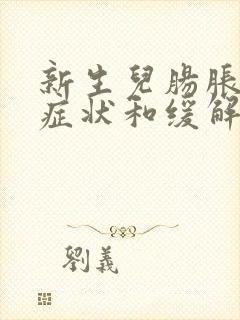 新生兒腸脹
症狀和缓解
劉義